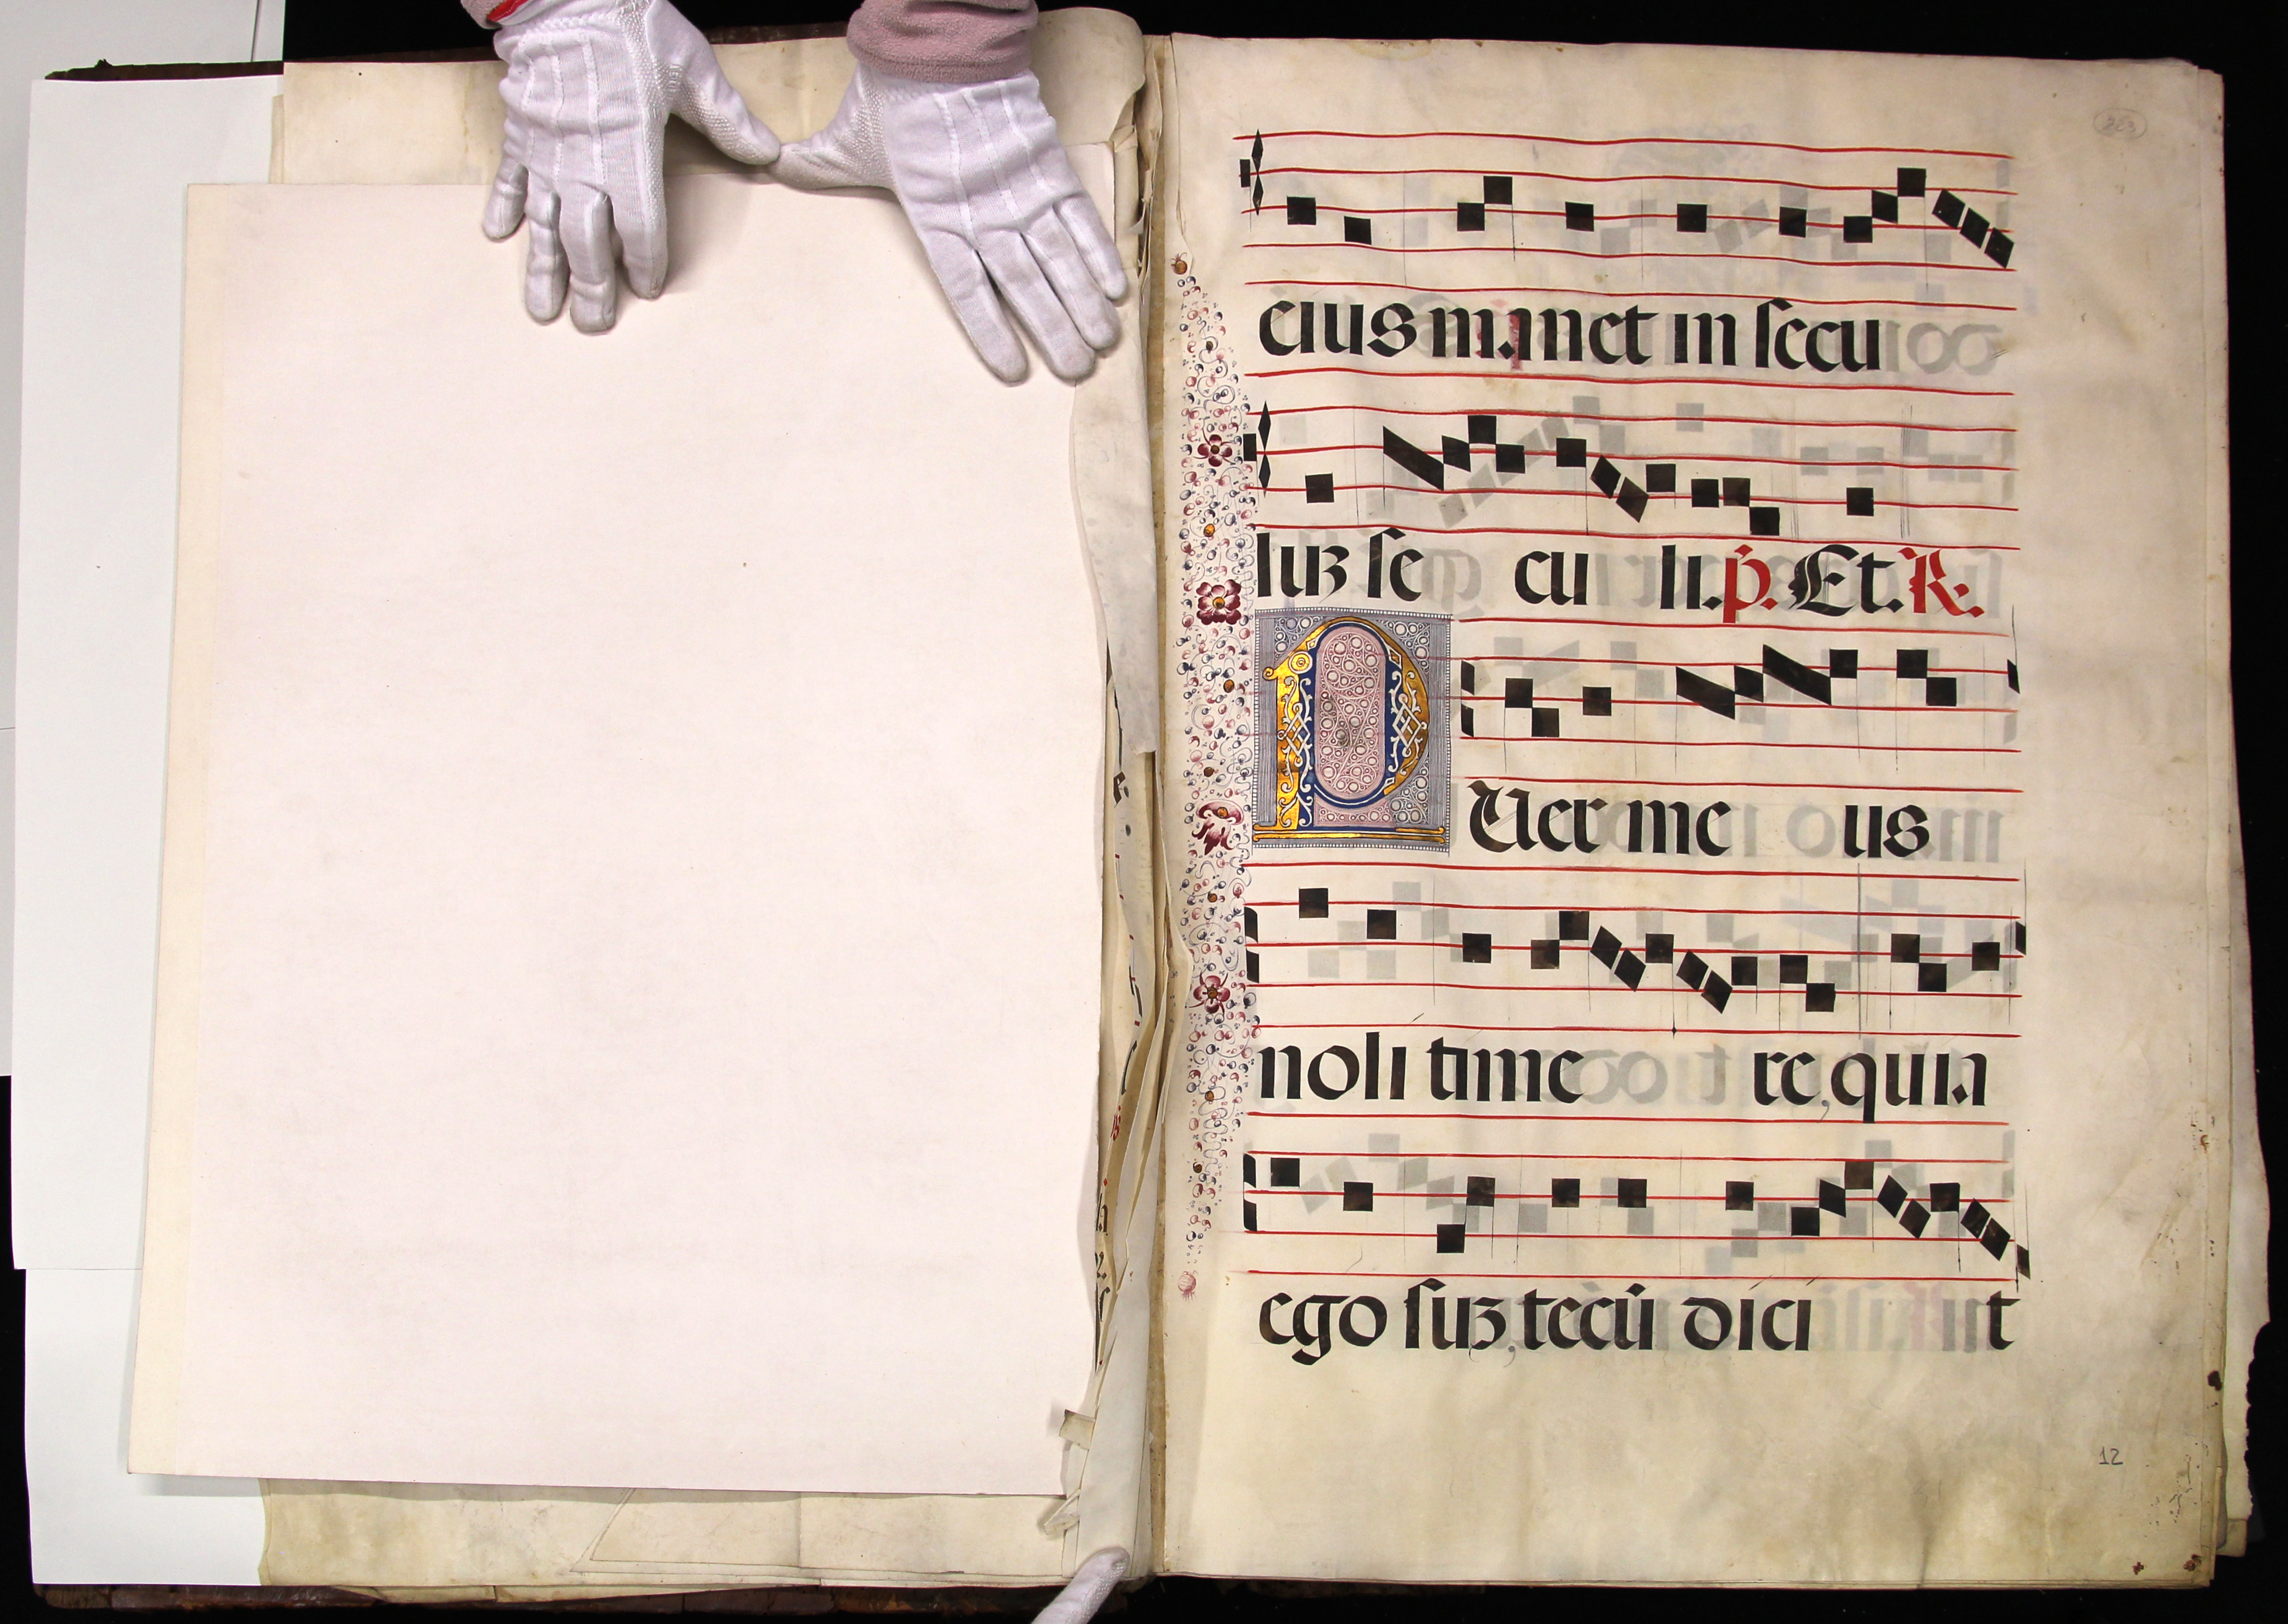 223
eius manet in secu
luz se cu li. p. Et. R.
PUer me us
noli time re, quia
ego suz, tecú dici it
12